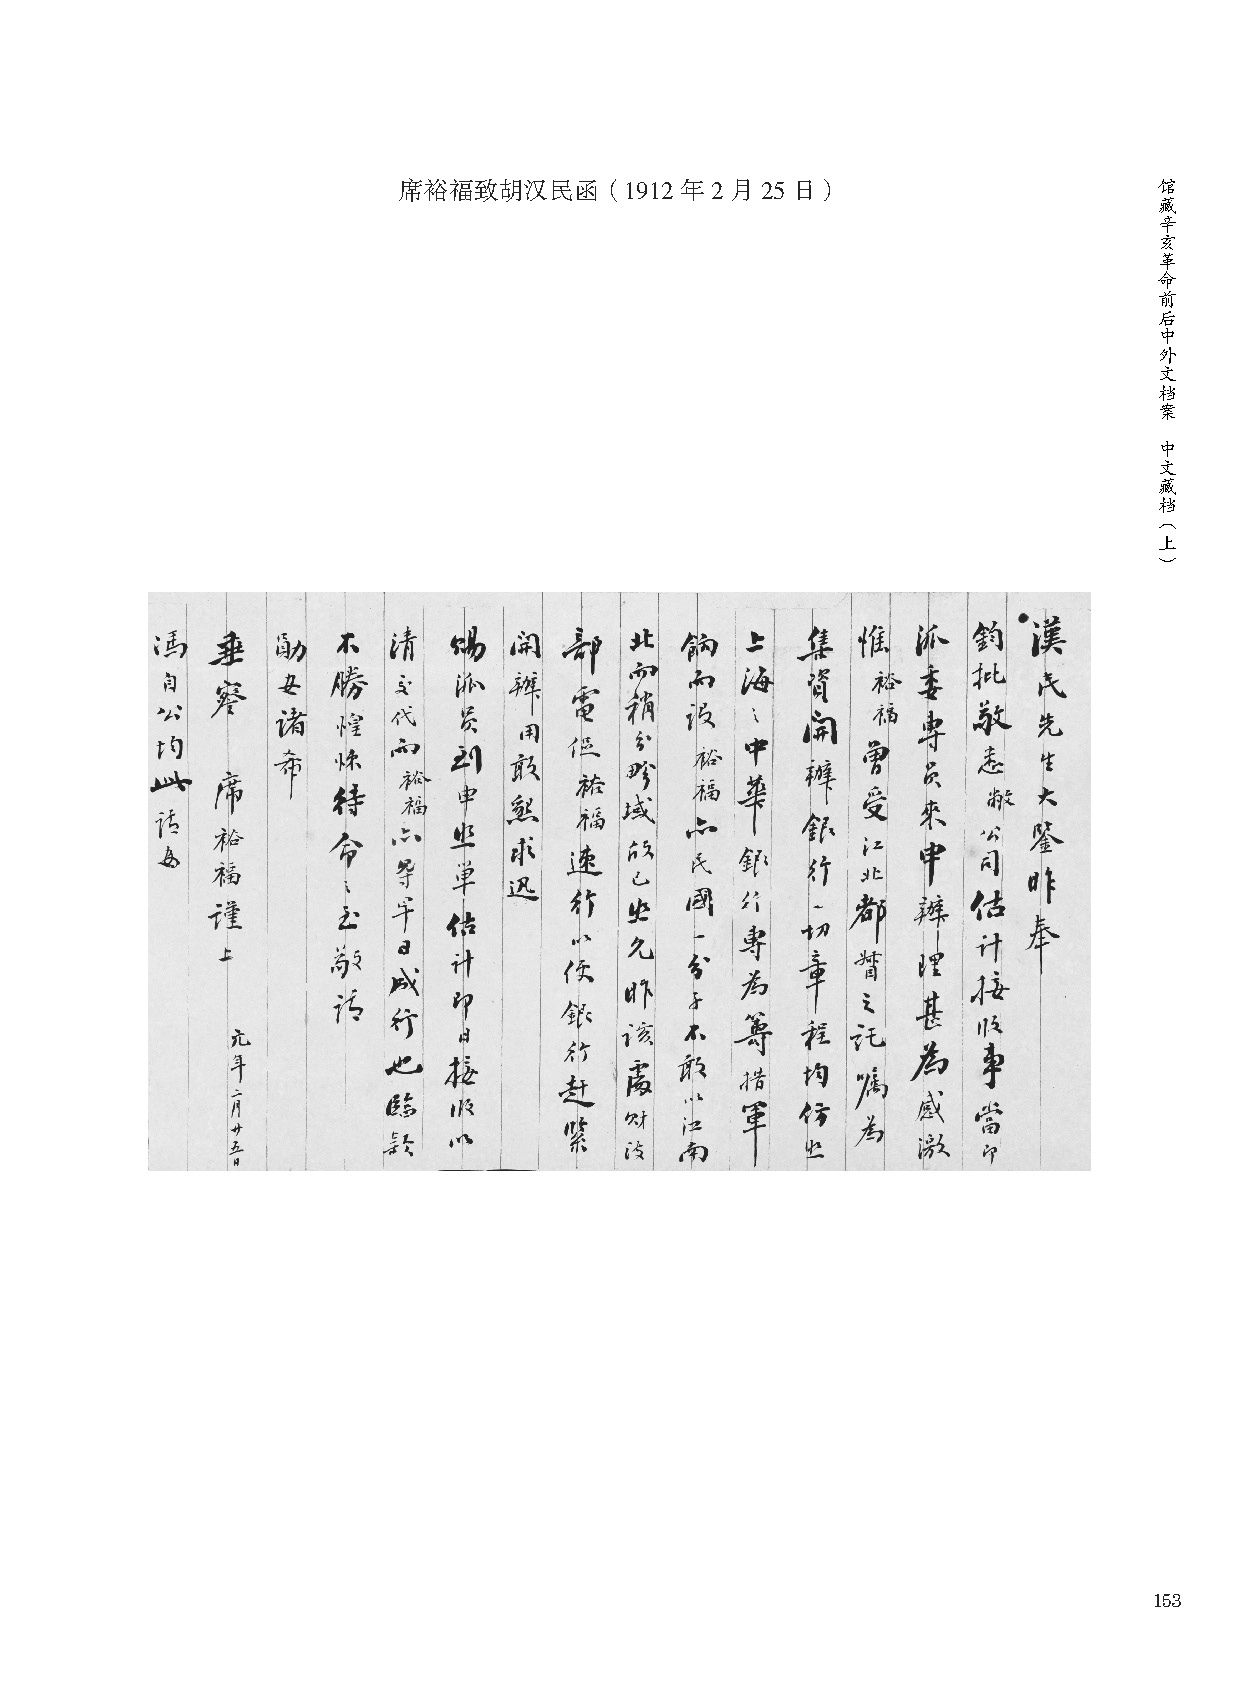 席裕福致胡汉民函（1912 年 2 月 25 日）
馆藏辛亥革命前后中外文档案 中文藏档（上）
漢民先生大鑒昨奉
鈞批敬悉敝公司估計接收事當即
派委專員來申辦理甚為感激
惟裕福曾受江北都督之託囑為
集資開辦銀行一切章程均仿照
上海之中華銀行專為籌措軍
餉而設裕福亦民國一分子不敢以江南
北而稍分畛域故已照允昨該處財政
部電促裕福速行以便銀行赶緊
開辦用敢懇求迅
賜派員到申照單估計即日接收以
清交代而裕福亦得早日成行也臨穎
不勝惶悚待命之至敬請
勛安諸希
垂察 席裕福謹上 元年二月廿五日
馮自公均此請安
153